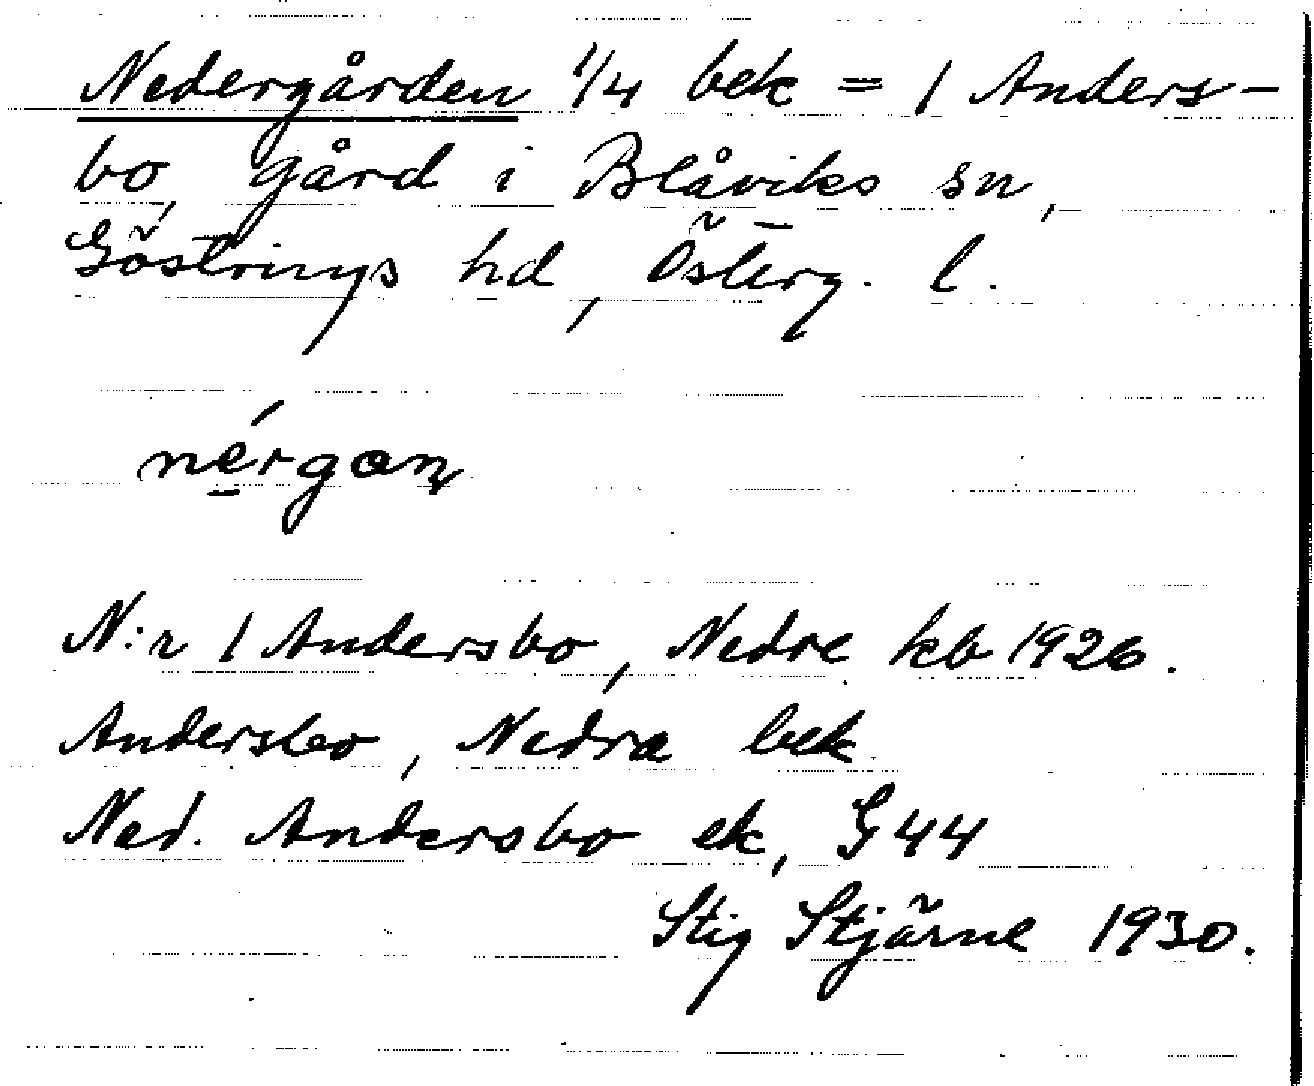 Nedergården 1/4 bek = 1 Anders-
bo, gård i Blåviks sn,
Göstrings hd, Österg. l.
nérgan
N:r 1 Andersbo, Nedre kb 1926.
Andersbo, Nedra bek
Ned. Andersbo ek, G 44
Stig Stjärne 1930.